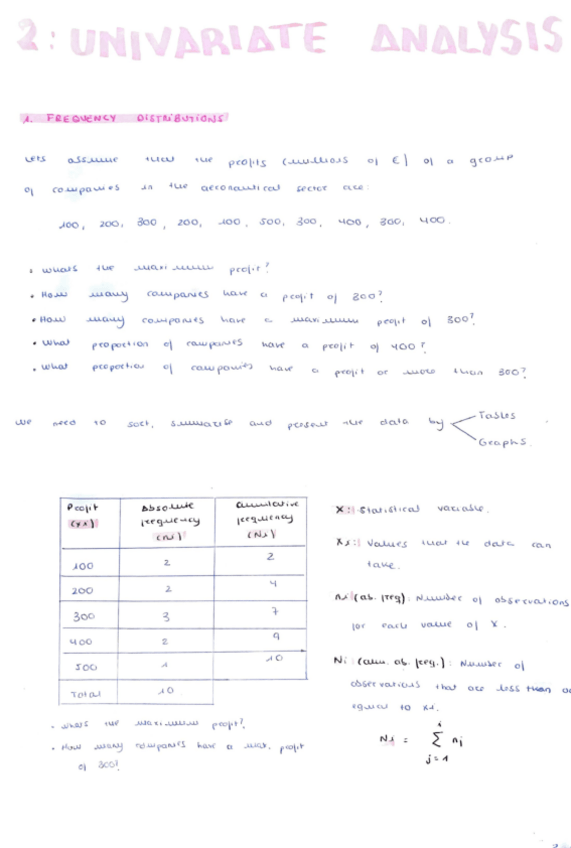 2: UNIVARIATE ANALYSIS
1. FREQUENCY DISTRIBUTIONS
Lets assume that the profits (millions of €) of a group
of companies in the aeronautical sector are:
100, 200, 300, 200, 100, 500, 300, 400, 300, 400.
• Whats the maximum profit?
• How many companies have a profit of 300?
• How many companies have a maximum profit of 300?
• What proportion of companies have a profit of 400?
• What proportion of companies have a profit or more than 300?
We need to sort, summarise and present the data by
Tables
Graphs.
Profit (xi) Absolute frequency (ni) Cumulative frequency (Ni)
100 2 2
200 2 4
300 3 7
400 2 9
500 1 10
Total 10
• Whats the maximum profit?
• How many companies have a max. profit
of 300?
X: Statistical variable.
Xi: Values that the data can
take.
ni (ab. freq): Number of observations
for each value of X.
Ni (cum. ab. freq.): Number of
observations that are less than or
equal to xi.
Ni = i Σ j=1 nj